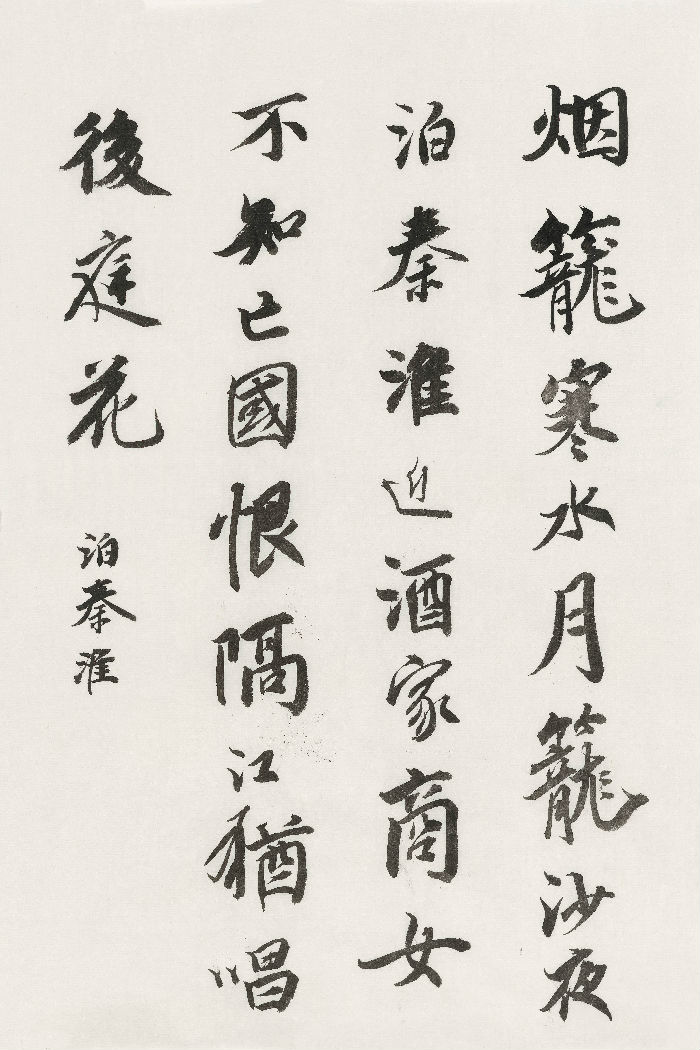 烟籠寒水月籠沙夜
泊秦淮近酒家商女
不知亡國恨隔江猶唱
後庭花
泊秦淮